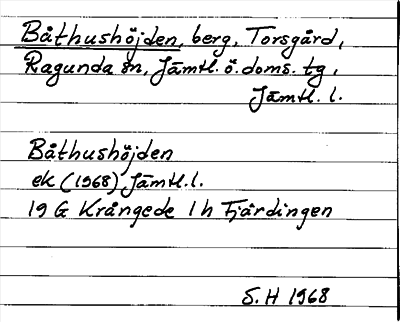 Båthushöjden, berg, Torsgård,
Ragunda sn, Jämtl. ö. doms. tg,
Jämtl. l.
Båthushöjden
ek (1968) Jämtl. l.
19 G Krångede 1 h Fjärdingen
S. H 1968